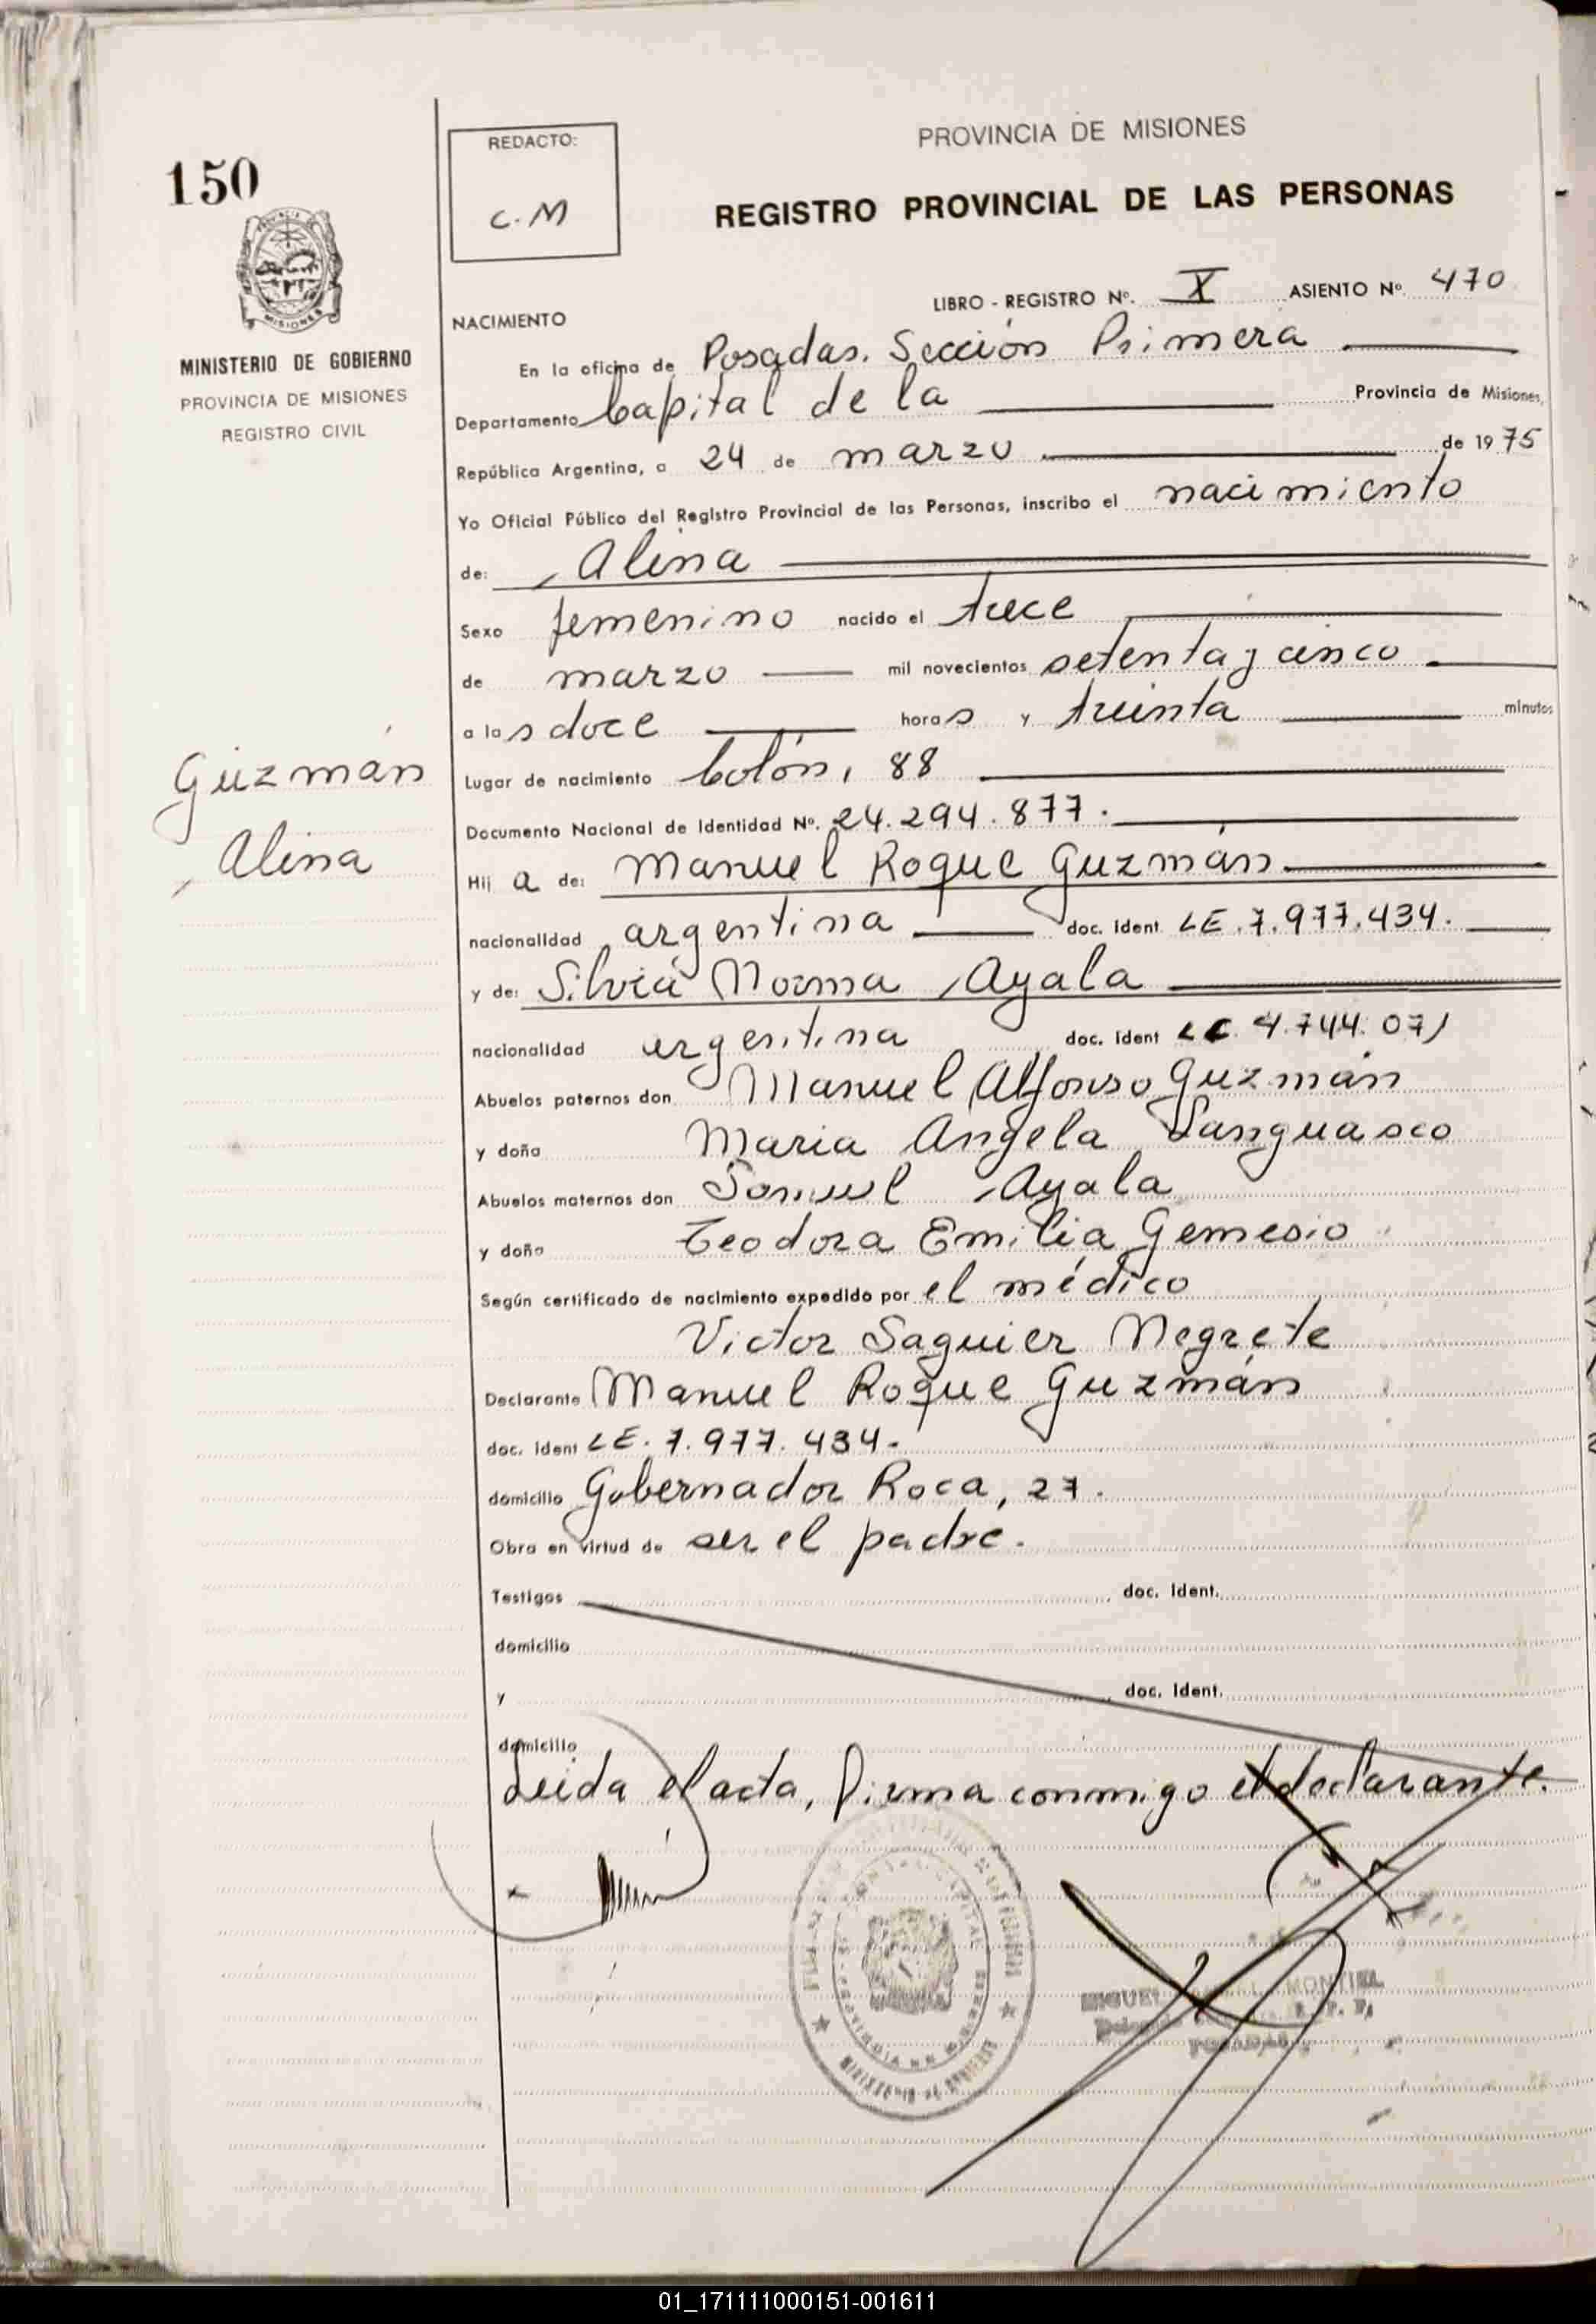 150
REDACTO:
C.M
PROVINCIA DE MISIONES
REGISTRO PROVINCIAL DE LAS PERSONAS
MISIONES
MINISTERIO DE GOBIERNO
PROVINCIA DE MISIONES
REGISTRO CIVIL
LIBRO - REGISTRO Nº. X ASIENTO Nº. 470
NACIMIENTO
En la oficina de Posadas. Sección Primera
Departamento Capital de la Provincia de Misiones,
República Argentina, a 24 de marzo de 1975
Yo Oficial Público del Registro Provincial de las Personas, inscribo el nacimiento
de: Alina
Sexo femenino nacido el trece
de marzo mil novecientos setenta y cinco
a las doce horas y treinta minutos
Guzmán
Alina
Lugar de nacimiento Colón, 88
Documento Nacional de Identidad Nº. 24.294.877.
Hij a de: Manuel Roque Guzmán
nacionalidad argentina doc. Ident. LE.7.977.434.
y de: Silvia Norma Ayala
nacionalidad argentina doc. Ident LC. 4.744.071
Abuelos paternos don Manuel Alfonso Guzmán
y doña Maria Angela
Abuelos maternos don Ayala
y doña Teodora Emilia Gemesio
Según certificado de nacimiento expedido por el médico
Victor Saguier Negrete
Declarante Manuel Roque Guzmán
doc. Ident LE. 7.977.434.
domicilio Gobernador Roca, 27.
Obra en virtud de ser el padre.
Testigos doc. Ident.
domicilio
y doc. Ident.
domicilio
Leida el acta, firma conmigo el declarante.
MONTIEL
POSADAS
01_171111000151-001611